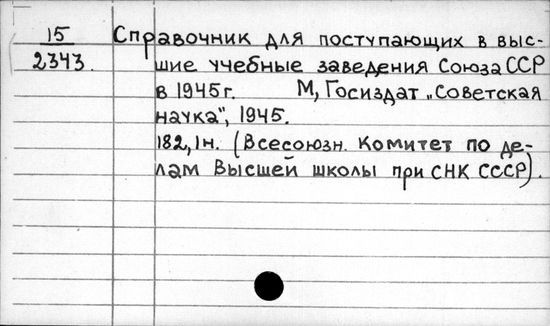 15 Справочник для поступающих в выс-
2343. шие учебные заведения Союза ССР
в 1945г. М, Госиздат „Советская
наука", 1945.
182,1н. (Всесоюзн. Комитет по де-
лам Высшей школы при СНК СССР).